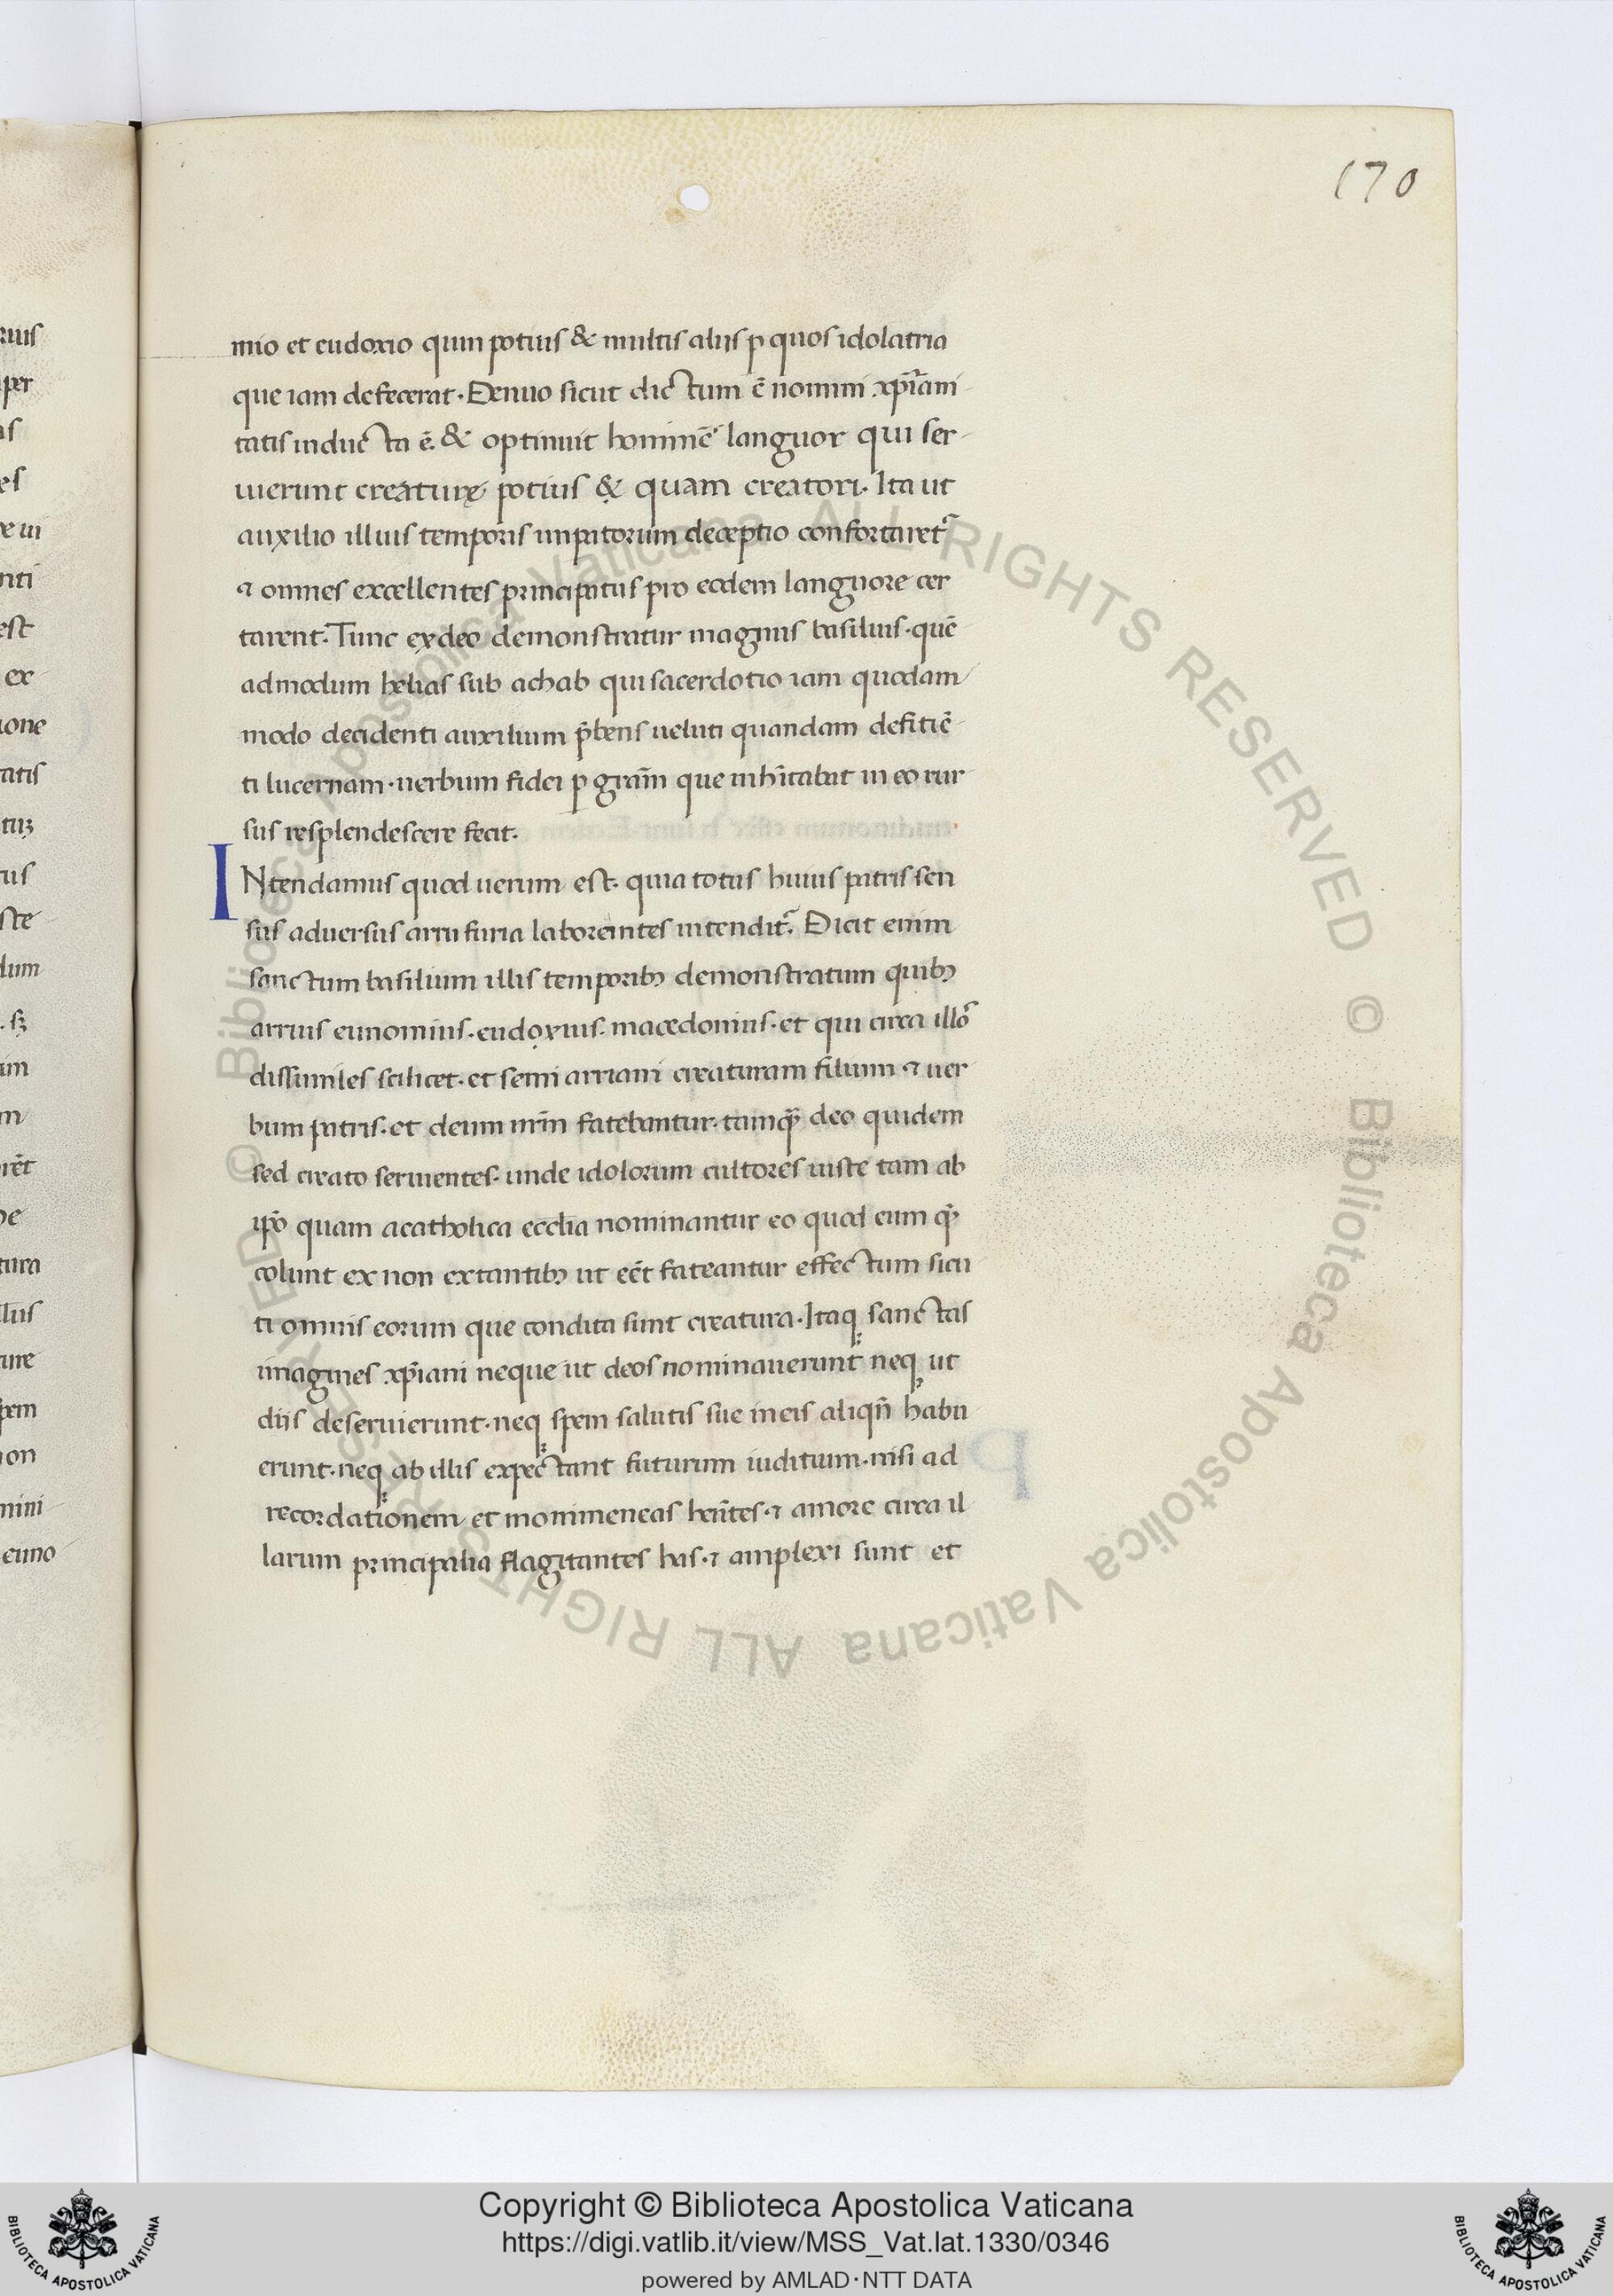 170
mio et eudoxio quin potius & multis aliis p quos idolatria
que iam defecerat. Denuo sicut dictum ē nomini xp̄iani
tatis inducta ē. & optinuit hominē languor qui ser
uierunt creaturę potius & quam creatori. Ita ut
auxilio illius temporis inpatorum deceptio confortaret᷑
⁊ omnes excellentes principatus pro eodem languore cer
tarent. Tunc ex deo demonstratur magnus basilius. quē
admodum helias sub achab qui sacerdotio iam quodam
modo decidenti auxilium p̄bens ueluti quandam defitiē
ti lucernam. uerbum fidei p grām que inhītabat in eo rur
sus resplendescere fecit.
INtendamus quod uerum est. quia totus huius patris sen
sus aduersus arrii furia laborantes intendit᷑. Dicit enim
sanctum basilium illis temporibꝫ demonstratum quibꝫ
arrius eunomius. eudoxius. macedonius. et qui circa illō
dissimiles scilicet. et semi arriani creaturam filium ⁊ uer
bum patris. et deum nr̄m fatebantur. tamq̄ deo quidem
sed creato seruientes. unde idolorum cultores iuste tam ab
ip̄o quam a catholica ecclīa nominantur eo quod eum q̄
colunt ex non extantibꝫ ut eēt fateantur effectum sicu
ti omnis eorum que condita sunt creatura. Itaqꝫ sanctas
imagines xp̄iani neque ut deos nominauerunt neqꝫ ut
diis deseruierunt. neqꝫ spem salutis sue in eis aliqn̄ habu
erunt. neqꝫ ab illis expectant futurum iuditium. nisi ad
recordationem et hēntes. ⁊ amore circa il
larum principalia flagitantes has. ⁊ amplexi sunt et
© Biblioteca Apostolica Vaticana ALL RIGHTS RESERVED
© Biblioteca Apostolica Vaticana ALL RIGHTS RESERVED
Copyright © Biblioteca Apostolica Vaticana
https://digi.vatlib.it/view/MSS_Vat.lat.1330/0346
powered by AMLAD·NTT DATA
BIBLIOTECA APOSTOLICA VATICANA
BIBLIOTECA APOSTOLICA VATICANA